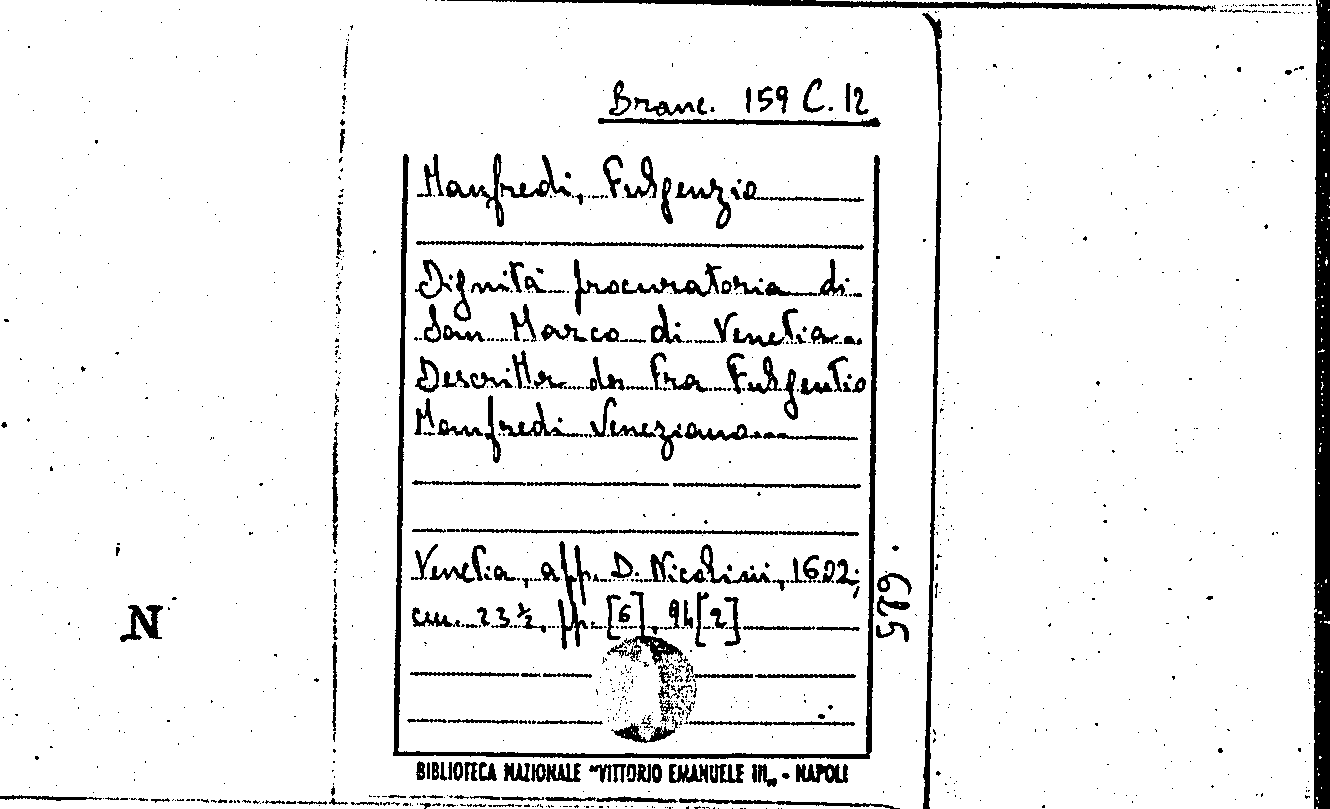 Branc. 159 C. 12
Manfredi, Fulgenzio
Dignità procuratoria di
San Marco di Venetia...
Descritta da Fra Fulgentio
Manfredi Veneziano...
Venetia, app. D. Nicolini, 1602;
cm. 23 ½, pp. [6], 94 [2]
685
N
BIBLIOTECA NAZIONALE "VITTORIO EMANUELE III„ - NAPOLI